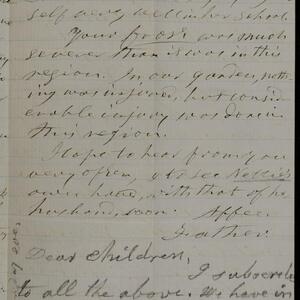 self very well in her school.
Your frost was much
severer than it was in this
region. In our garden, noth-
ing was injured, but consid-
erable injury was done in
this region.
I hope to hear from you
very often, & to see Nellie's
own hand, with that of her
husband, soon. Affec.
Father.
Dear Children,
I subscribe
to all the above. We have in